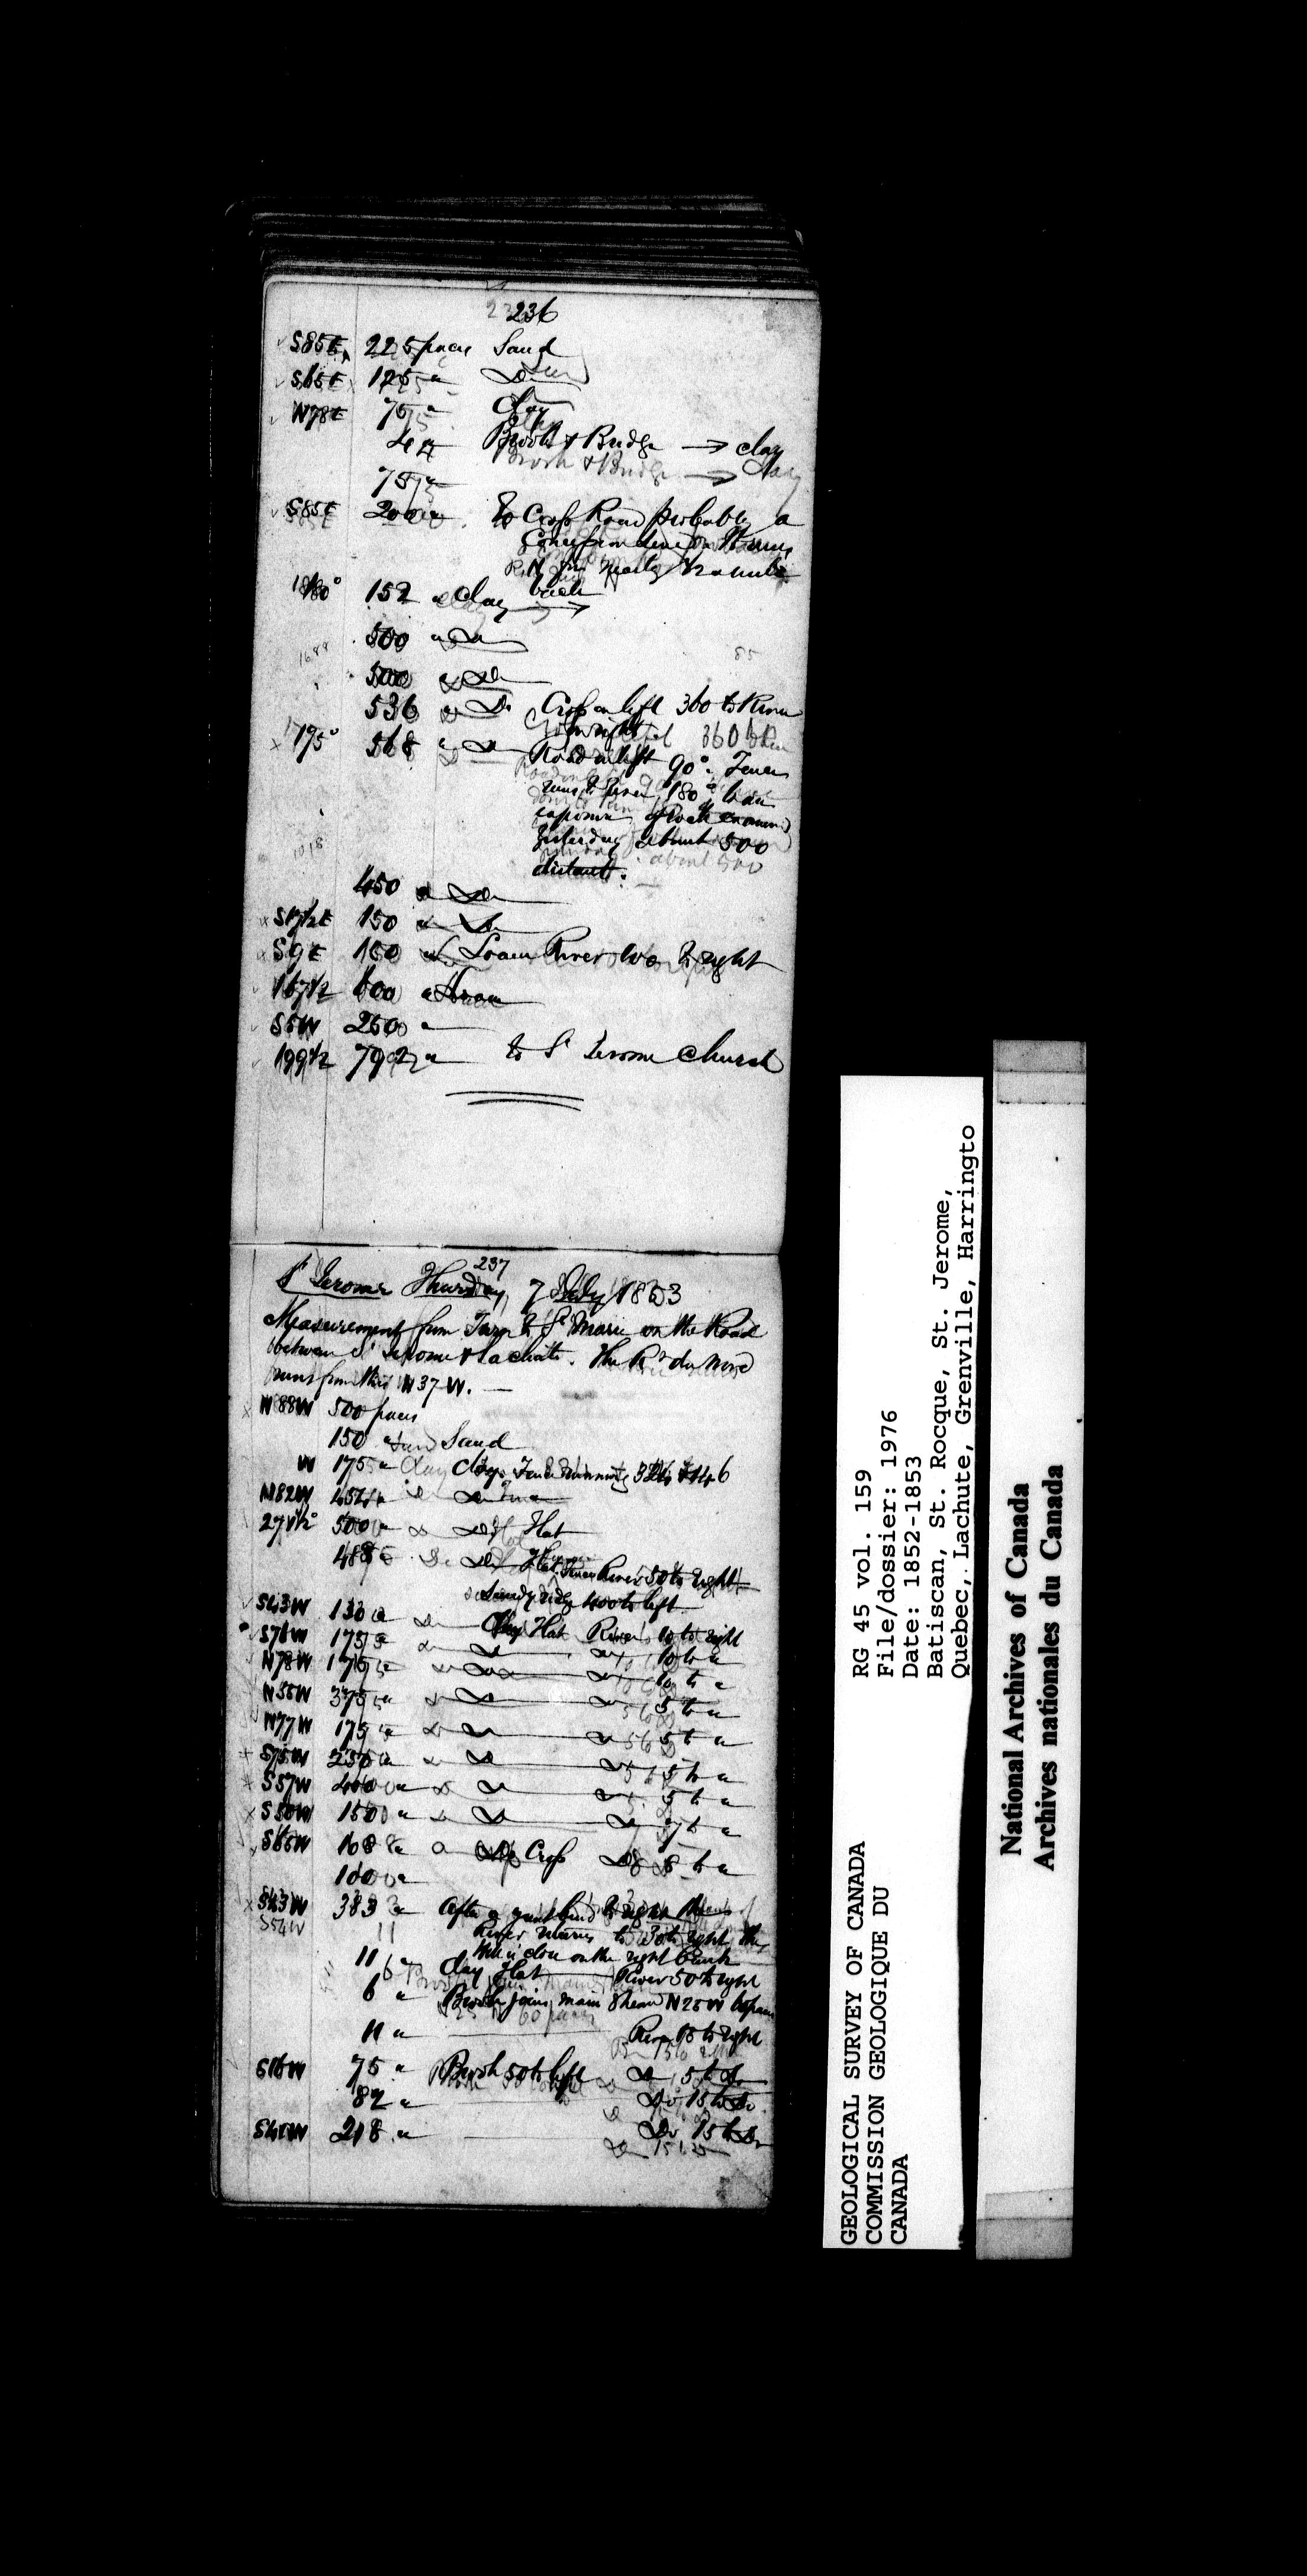 236
S85E 225 paces Sand
S65E 125 " Do
N78E 75 " Clay
4 " Brook & Bridge → clay
75 "
S85E 200 " To Cross Road probably a
Concession line
R. N. nearly
back
180° 152 " Clay →
500 " Do
1688
85
500 " Do
536 " Do Cross on left 360 to River
on right
195° 568 " Do Road on left 90°. Fence
runs to River 180°
exposure of Rock examined
yesterday about 500
distant.
1018
450 " Do
S17½E 150 " Do
S9E 150 " Loam River 100 to right
167½ 600 " Loam
S5W 250 "
199½ 792 " to St Jerome Church
237
St Jerome Thursday, 7 July 1853
Measurement from Turn to St Marie on the Road
between St Jerome & Lachute. The Rr du Nord
runs from this N 37 W. —
N88W 500 paces
150 " Sand
W 175 " Clay Fence running
N82W 452 " Do
271½° 500 " Do Flat
485 " Do Flat River 50 to right
Sandy ridge 400 to left
S43W 130 " Clay Flat River 10 to right
S76W 175 " Do Do 10 to "
N78W 175 " Do Do 10 to "
N55W 375 " Do Do 5 to "
N77W 175 " Do Do 5 to "
S75W 250 " Do Do 5 to "
S57W 400 " Do Do 5 to "
S50W 150 " Do Do 7 to "
S65W 168 " Do Cross Do 8 to "
100 "
S43W 383 " After a great bend to right the
S54W
River returns to 30 to right the
hill is close on the right bank
11 " Clay Flat River 50 to right
6 " Brook joins main Stream N25W 60 paces
11 " River 15 to right
S16W 75 " Brook 50 to left Do 5 to Do
82 " Do 15 to Do
S41W 218 " Do 15 to Do
RG 45 vol. 159
File/dossier: 1976
Date: 1852-1853
Batiscan, St. Rocque, St. Jerome,
Quebec, Lachute, Grenville, Harringto
GEOLOGICAL SURVEY OF CANADA
COMMISSION GEOLOGIQUE DU
CANADA
National Archives of Canada
Archives nationales du Canada